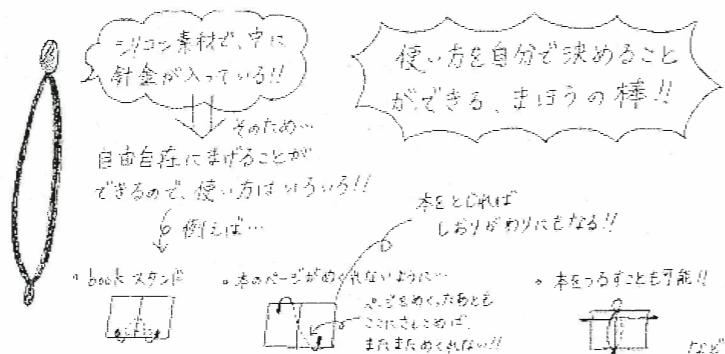 シリコン素材で、中に
針金が入っている!!
使い方を自分で決めること
ができる、まほうの棒!!
そのため…
自由自在にまげることが
できるので、使い方はいろいろ!!
例えば…
本をとじれば
しおりがわりにもなる!!
・bookスタンド
・本のページがめくれないように…
ページをめくったあとも
ここにさしこめば、
またまためくれない!!
・本をつるすことも可能!!
など